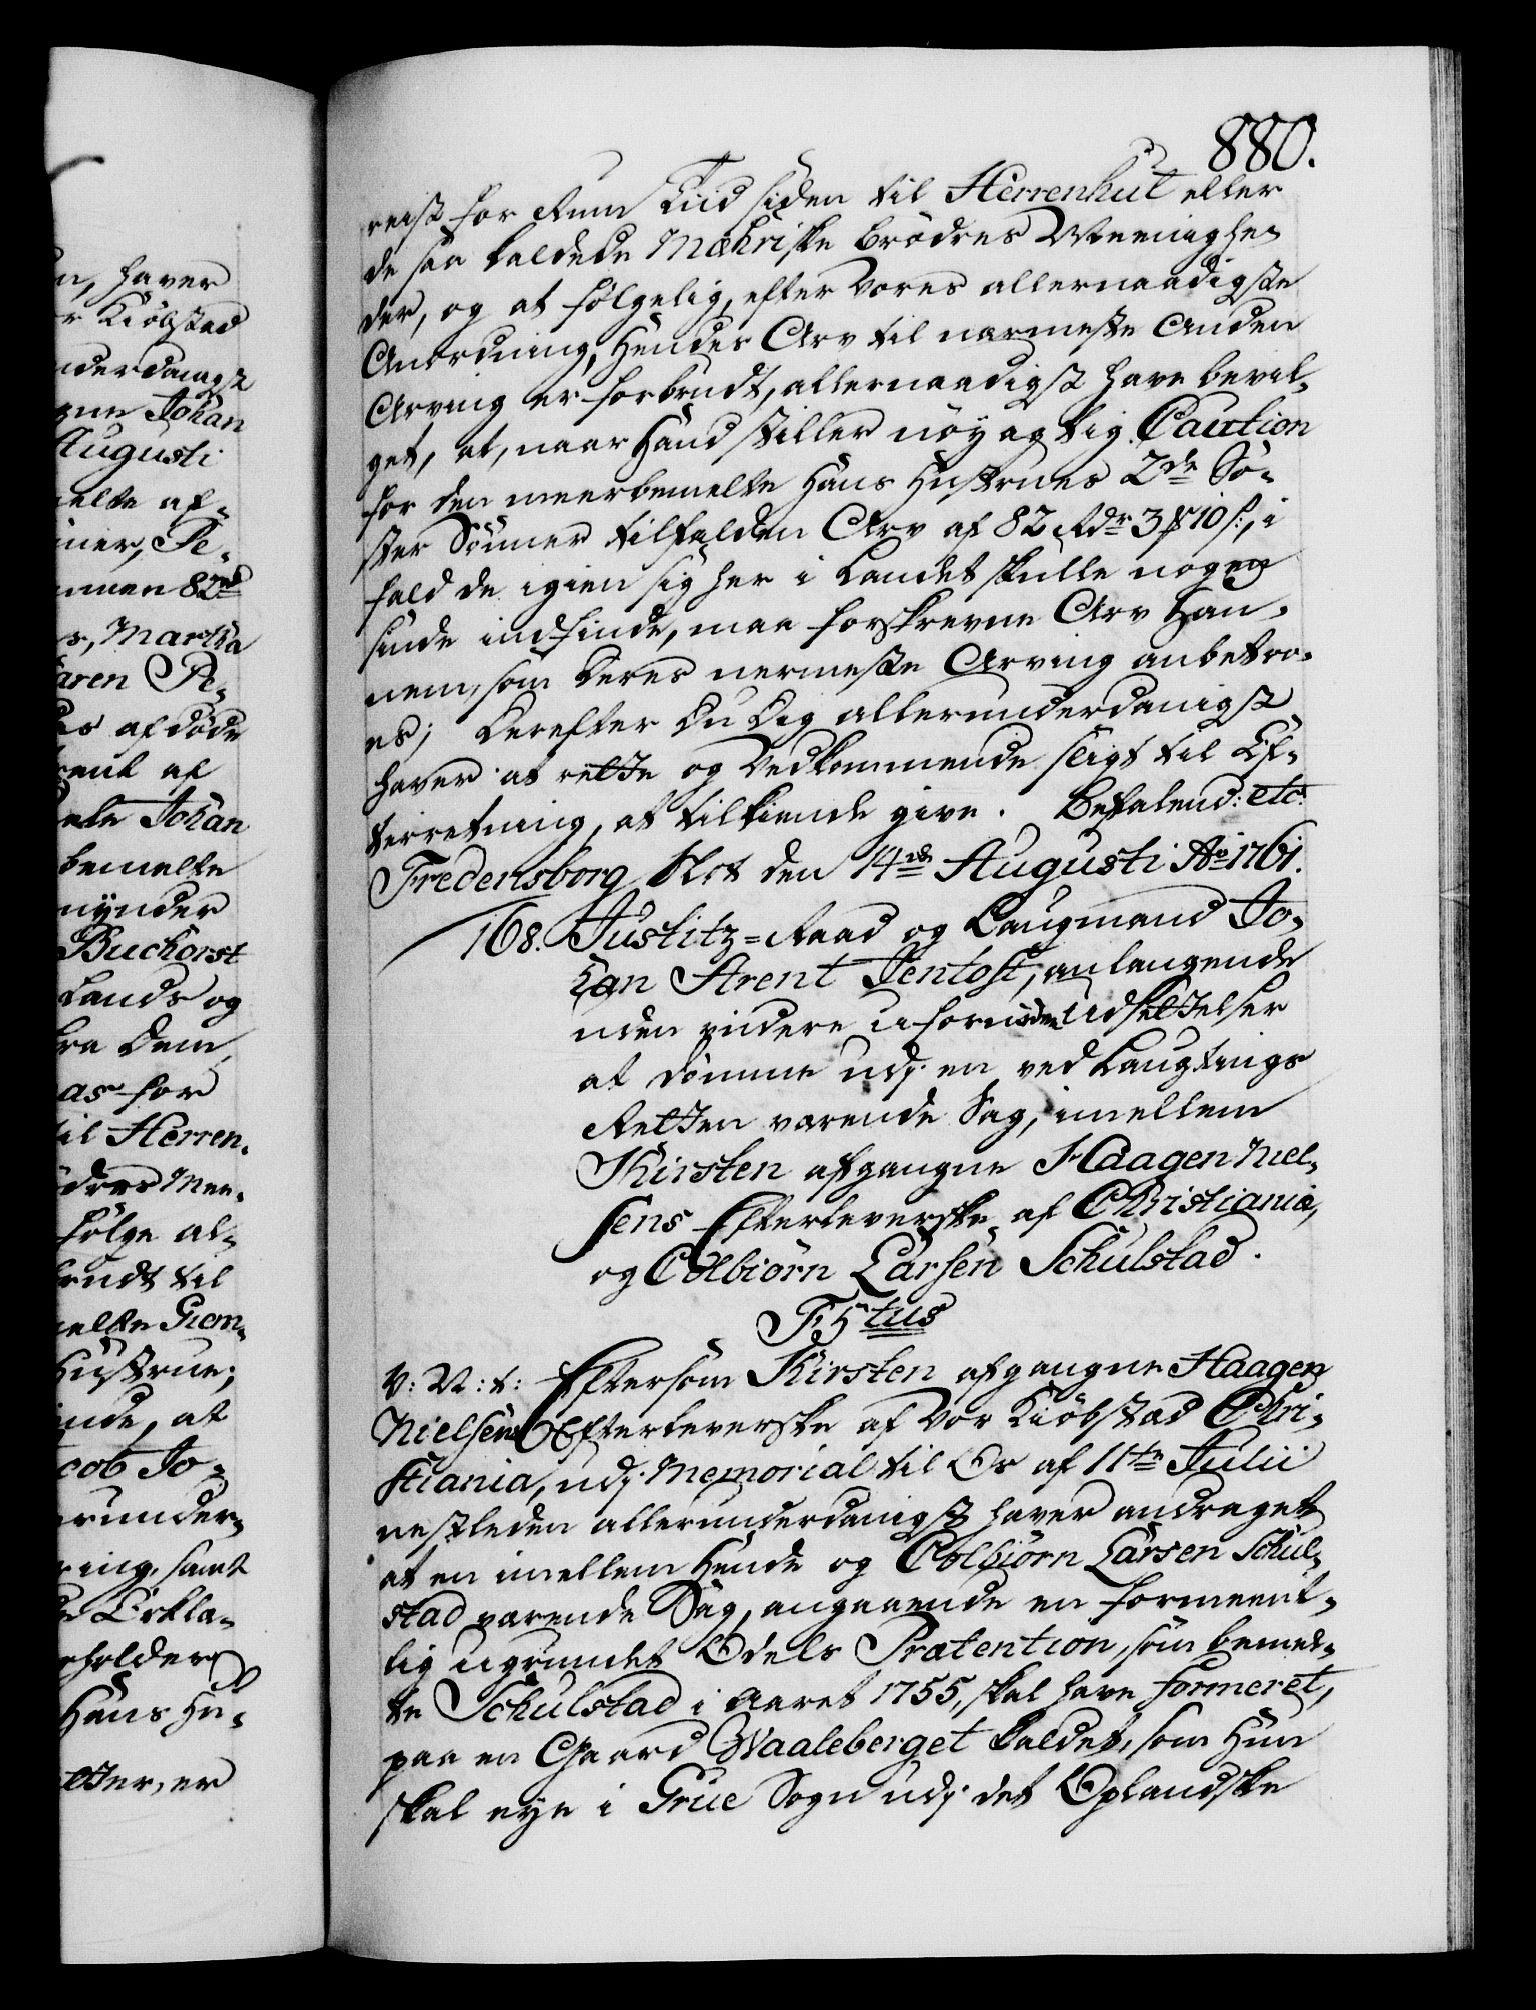 880.
reist for rum Tiid siden til Herrenhut eller
de saa kaldede Mæhriske Brødres Meenighe-
der, og at følgelig, efter Vores allernaadigste
Anordning, Hendes Arv til nærmeste Anden
Arving er forbrudt, allernaadigst have bevil-
get, at, naar Hand stiller nöyagtig Caution
for den meerbemelte Hans Hustrues 2de Sö-
ster Sönner tilfalden Arv af 82 Rdr 3 ß 10 s:, i
fald de igien sig her i Landet skulle nogen
sinde indfinde, maa forskrevne Arv Han-
nem, som Deres nermeste Arving anbetro-
es; Derefter Du Dig allerunderdanigst
haver at rette og Vedkommende sligt til Ef-
terretning, at tilkiende give. Befalend: etc.
Fredensborg Slot den 14de Augusti Ao 1761.
168. Justitz-Raad og Laugmand Jo-
han Arent Tentoft, anlangende
uden videre ufornöden Udsettelser
at dömme udj en ved Laugtings
Retten værende Sag, imellem
Kirsten afgangne Haagen Niel-
sens Efterleverske af Christiania,
og Colbiörn Larsen Schulstad.
F: 5tus
V: V: t: Eftersom Kirsten afgangne Haagen
Nielsens Efterleverske af Vor Kiöbstad Chri-
stiania, udj Memorial til Os af 11te Julii
nestleden allerunderdanigst haver andraget
at en imellem Hende og Colbiörn Larsen Schul-
stad værende Sag, angaaende en formeent-
lig ugrundet Odels Prætention, som bemel-
te Schulstad i Aaret 1755, skal have formeret,
paa en Gaard Waaleberget kaldet, som Hun
skal eye i Grue Sogn udj det Oplandske
n, haver
r Kiöbstad
nderdanigst
gne Johan
Augusti
melte af-
nier, Pe-
men 82nd
s, Martha
aren Pe-
es afdöde
rent af
ele Johan
bemelte
mynder
Buchorst
Lands og
fra Dem,
as for
til Herren-
ödres Mee-
fölge al-
rudt til
melte Giem-
Hustrue;
inde, at
cob Jo-
runder-
ring, samt
de Erkla-
eholder
Hans Hu-
etter, er